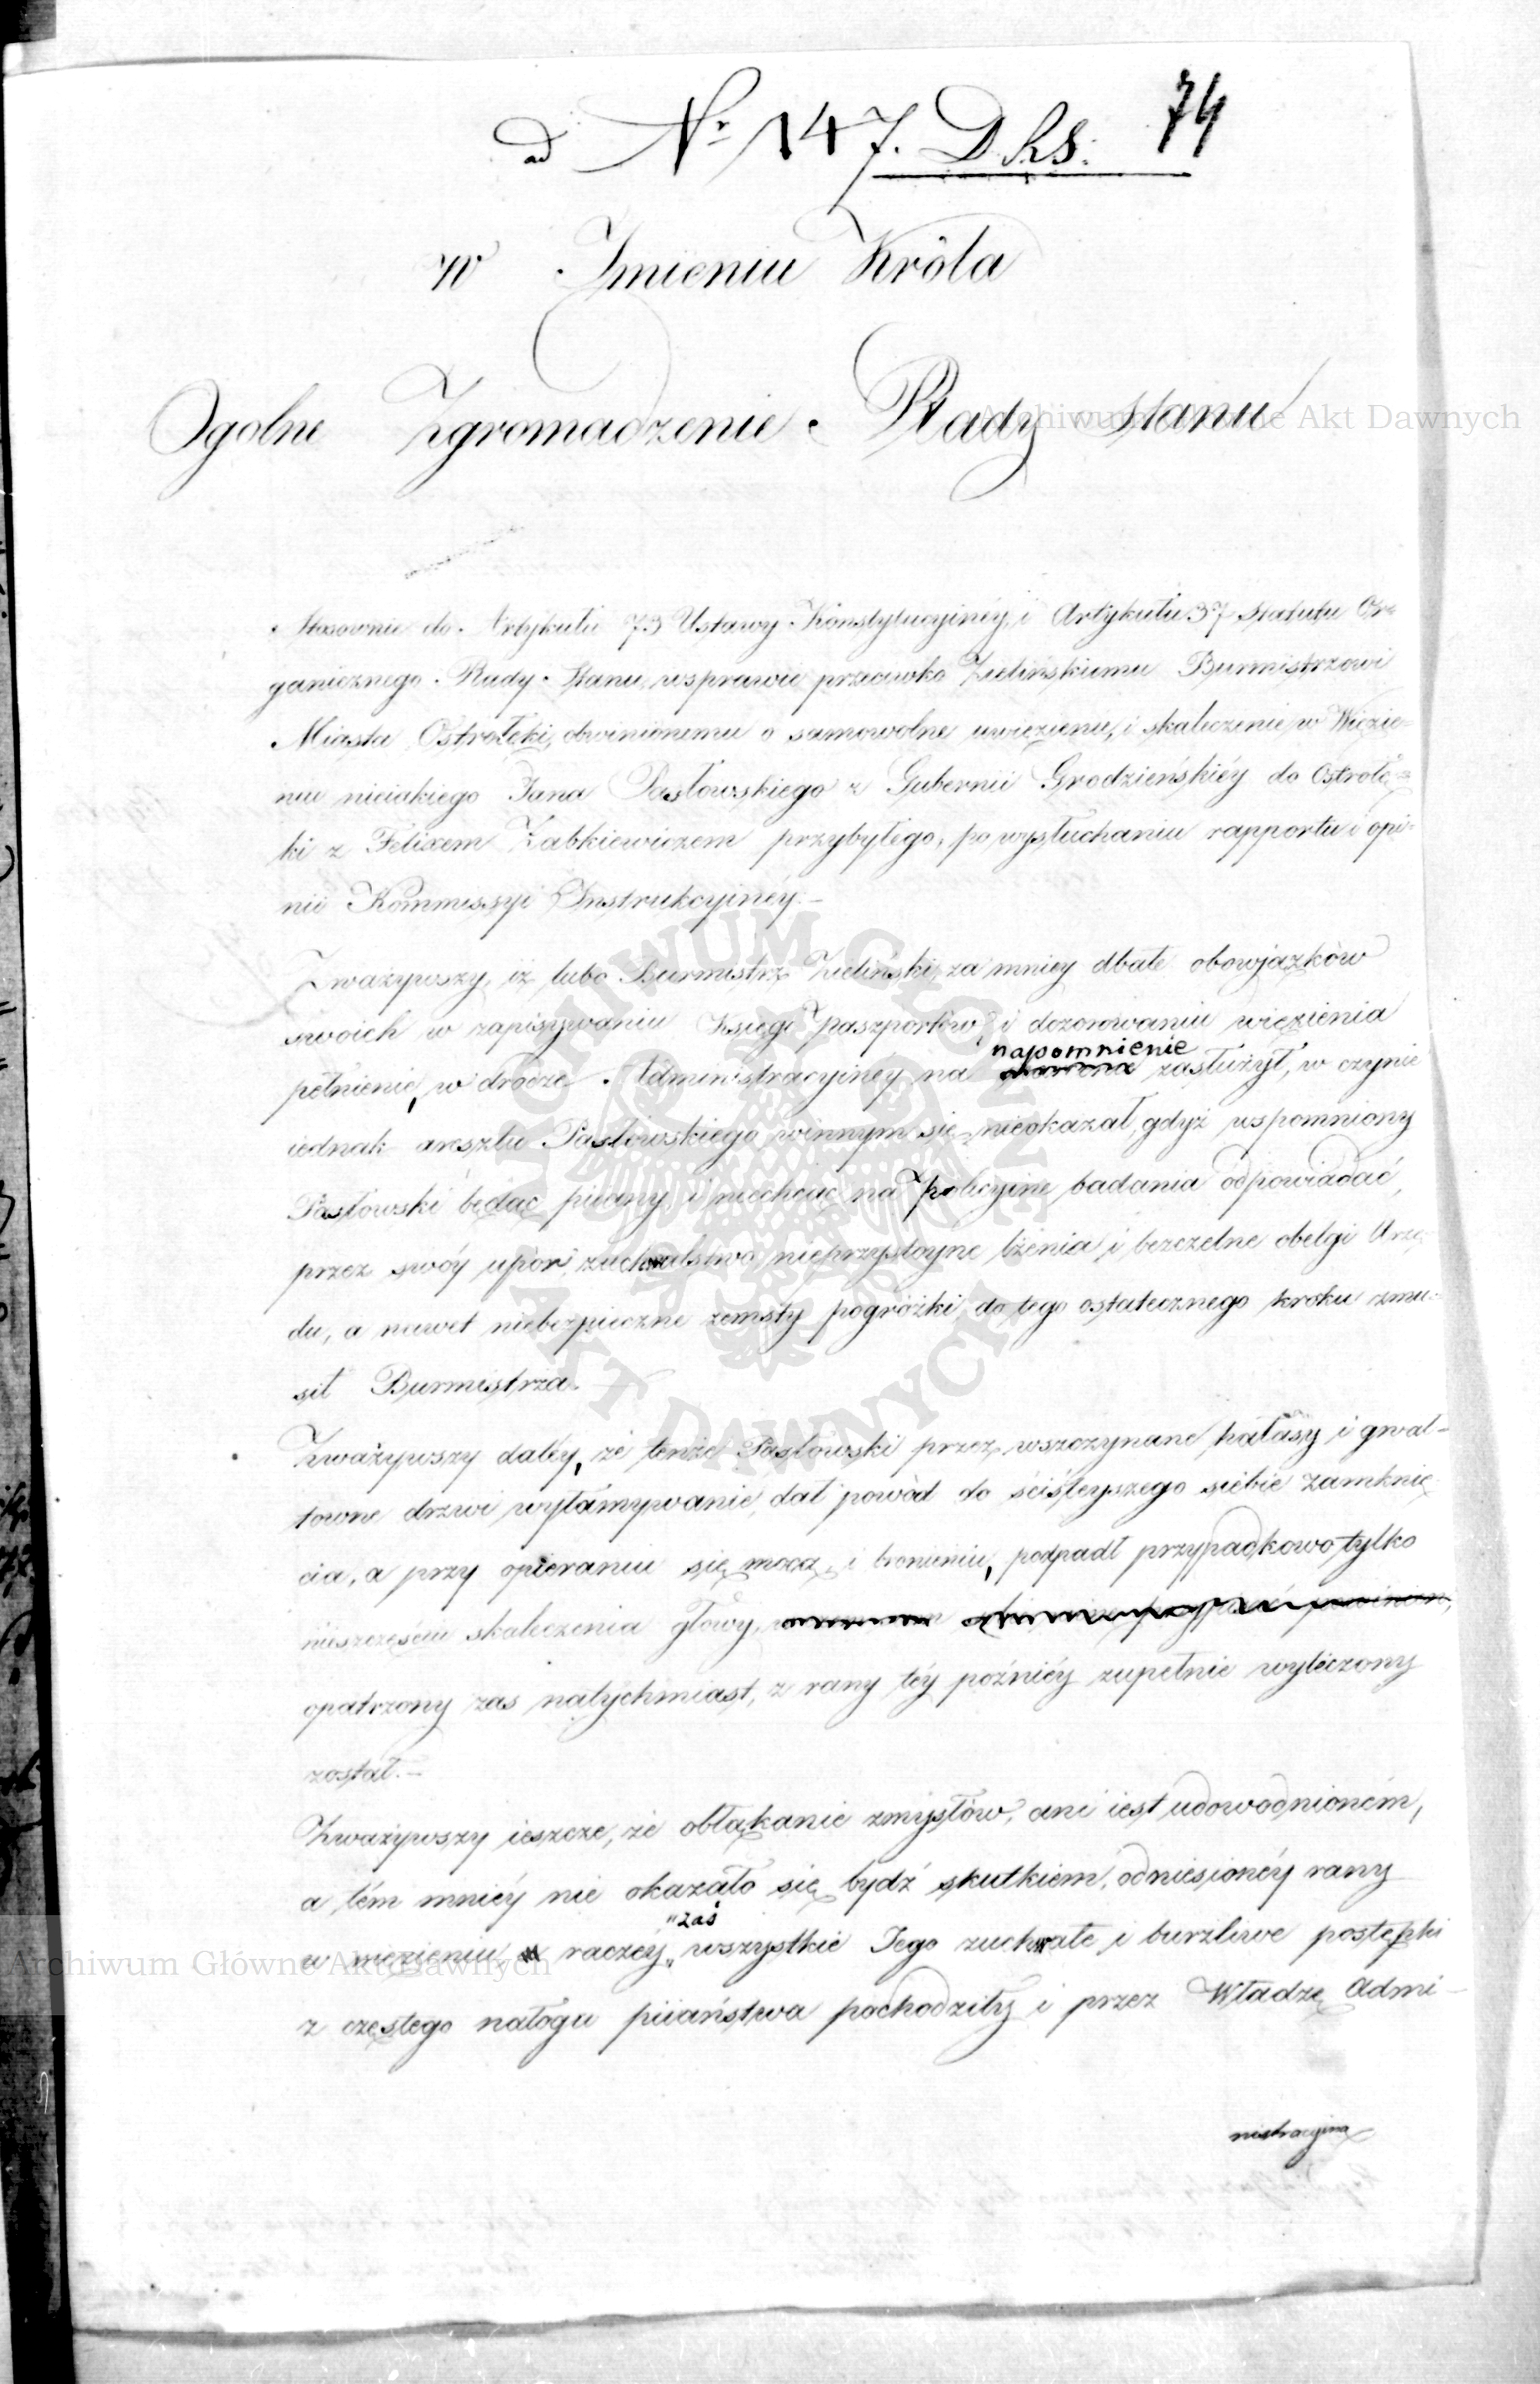 ad Nr 147. D.R.S. 74
w Imieniu Króla
Ogolne Zgromadzenie Rady Stanu
Stosownie do Artykułu 73 Ustawy Konstytucyinéy, i Artykułu 37 Statutu Or-
ganicznego Rady Stanu, wsprawie przeciwko Zielińskiemu Burmistrzowi
Miasta Ostrołęki, obwinionemu o samowolne uwięzienie, i skaleczenie w Więzie-
niu nieiakiego Jana Pasłowskiego z Gubernii Grodzieńskiéy do Ostrołę-
ki z Felixem Ząbkiewiczem przybyłego, po wysłuchaniu rapportu i opi-
nii Kommissyi Instrukcyinéy.—
Zważywszy, iż lubo Burmistrz Zieliński, za mniey dbałe obowiązków
swoich w zapisywaniu Księgi paszportów, i dozorowaniu więzienia
napomnienie
pełnienie, w drodze Administracyinéy na zasłużył, w czynie
iednak aresztu Pasłowskiego winnym się nieokazał, gdyż wspomniony
Pasłowski będąc piiany, i niechcąc na policyine badania odpowiadać,
przez swóy upór, zuchwalstwo, nieprzystoyne lżenia, i bezczelne obelgi Urzę-
du, a nawet niebezpieczne zemsty pogróżki, do tego ostatecznego kroku zmu-
sił Burmistrza.
Zważywszy daléy, że tenże Pasłowski przez wszczynane hałasy i gwał-
towne drzwi wyłamywanie, dał powód do ściśleyszego siebie zamknię-
cia, a przy opieraniu się mocą, i bronieniu, podpadł przypadkowo tylko
nieszczęściu skaleczenia głowy,
opatrzony zaś natychmiast, z rany téy poźniéy zupełnie wyleczony
został.—
Zważywszy ieszcze, że obłąkanie zmysłów, ani iest udowodnioném,
a tém mniéy nie okazało się bydź skutkiem, odniesionéy rany
"zaś
w więzieniu, raczéy, wszystkie Jego zuchwałe i burzliwe postępki
z częstego nałogu piiaństwa pochodziły i przez Władzę Admi-
nistracyiną
Archiwum Główne Akt Dawnych
ARCHIWUM GŁÓWNE AKT DAWNYCH
Archiwum Główne Akt Dawnych